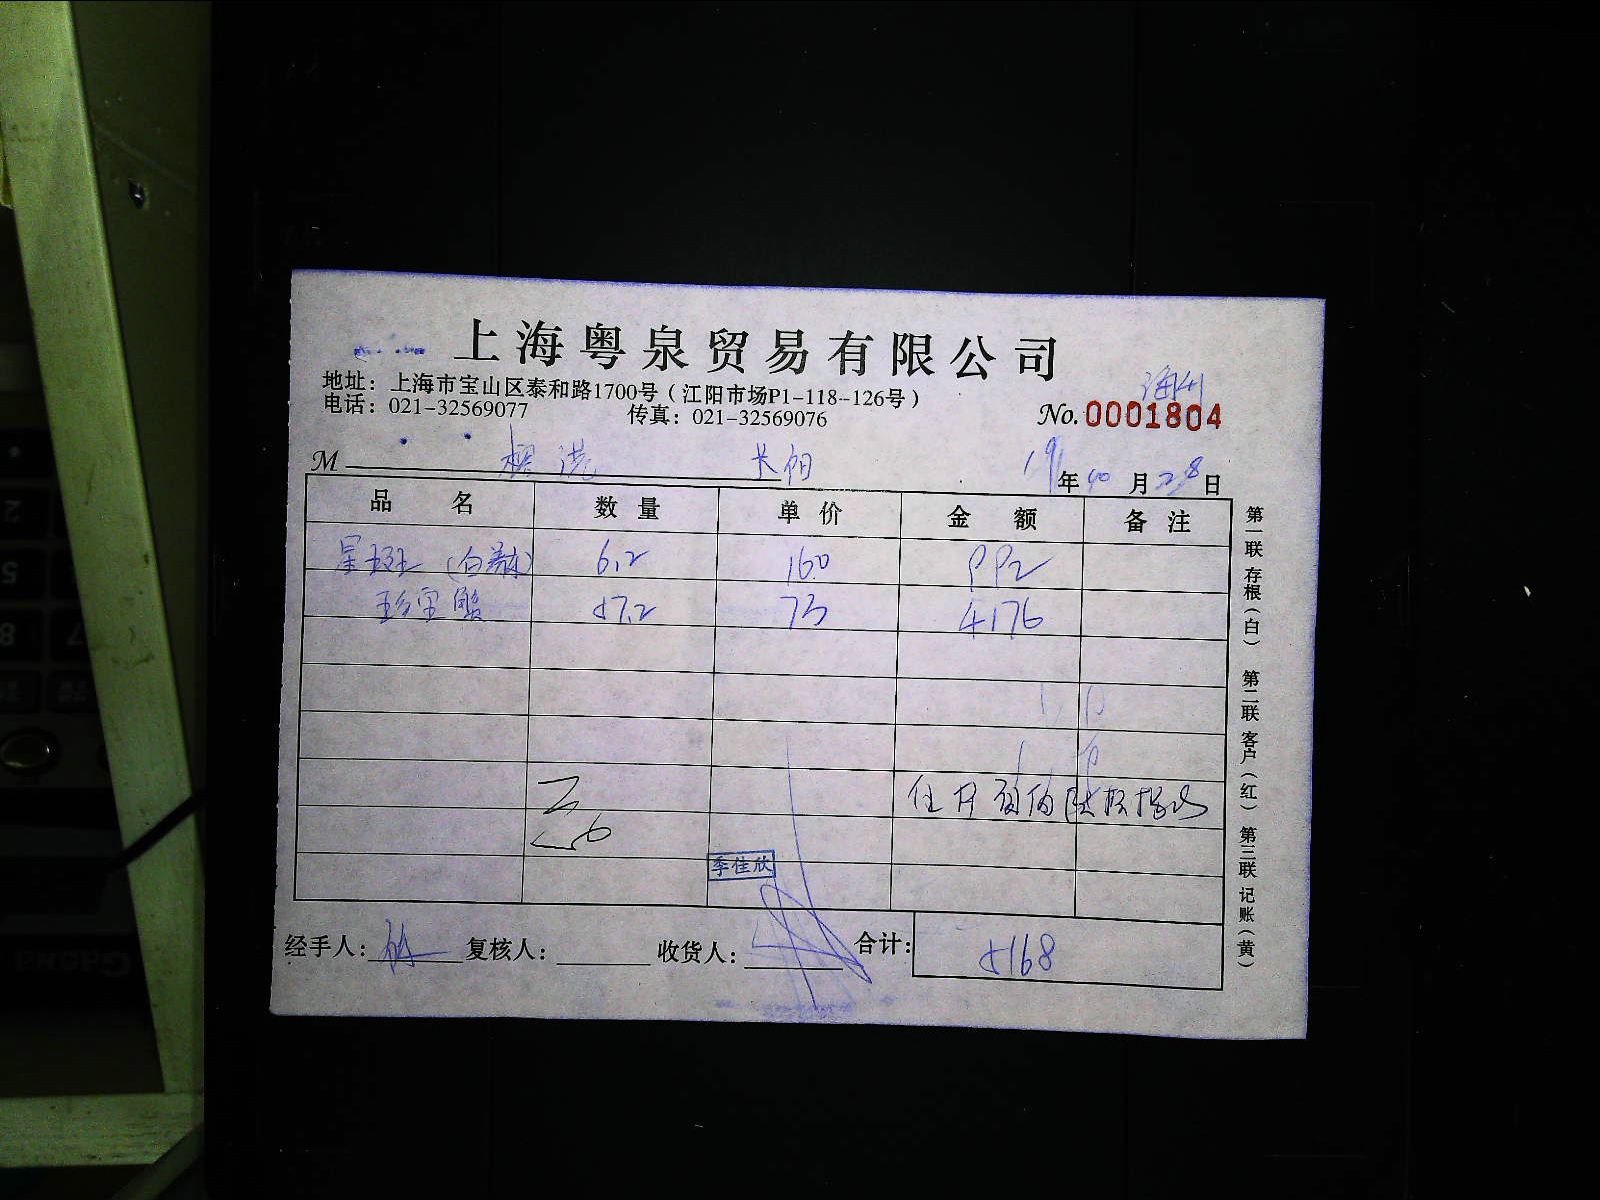 上海粤泉贸易有限公司
地址：上海市宝山区泰和路1700号（江阳市场P1-118--126号）
电话：021-32569077 传真：021-32569076
No.0001804
M 长阳
19年10月28日
品名 数量 单价 金额 备注
星斑 6.2 160 992
珍宝蟹 57.2 73 4176
季佳欣
经手人： 复核人： 收货人： 合计： 5168
第一联存根（白） 第二联客户（红） 第三联记账（黄）